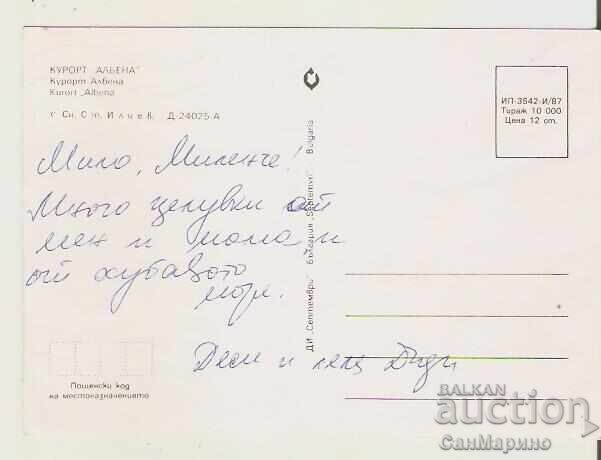 КУРОРТ "АЛБЕНА"
Курорт Албена
Kurort „Albena
Сн. Ст. Илиев. Д-24025-А
Мило, Миленче!
Много целувки от
мен и мама и
от хубавото
море.
Деси и леля Диди
ДИ „Септември" България „Septemvri" Bulgaria
ИП-3542-И/87
Тираж 10 000
Цена 12 ст.
Пощенски код
на местоназначението
BALKAN
auction
СанМарино